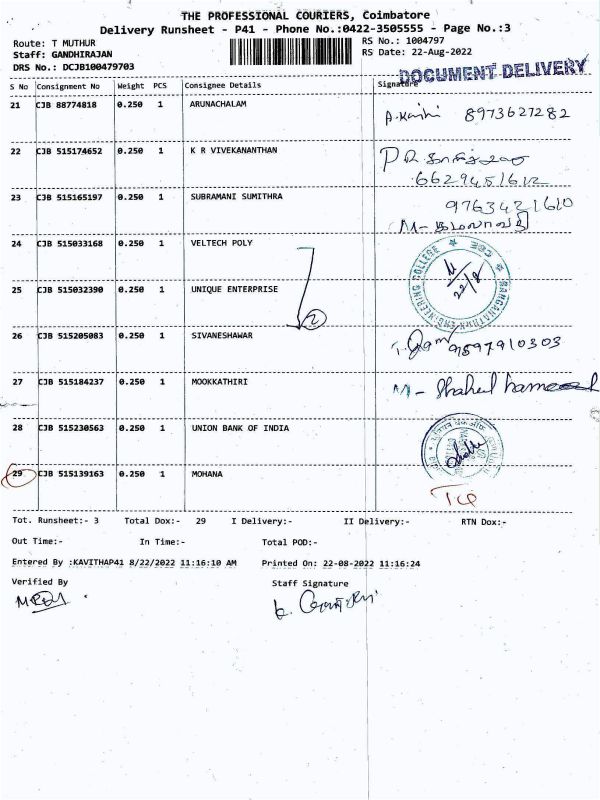 THE PROFESSIONAL COURIERS, Coimbatore
Delivery Runsheet - P41 - Phone No.:0422-3505555 - Page No.:3
Route: T MUTHUR
RS No.: 1004797
Staff: GANDHIRAJAN
RS Date: 22-Aug-2022
DRS No.: DCJB100479703
DOCUMENT DELIVERY
S No Consignment No Weight PCS Consignee Details Signature
21 CJB 88774818 0.250 1 ARUNACHALAM
8973627282
22 CJB 515174652 0.250 1 K R VIVEKANANTHAN
23 CJB 515165197 0.250 1 SUBRAMANI SUMITHRA
9763421610
24 CJB 515033168 0.250 1 VELTECH POLY
RANGANATHAN ENGINEERING COLLEGE
22/8
25 CJB 515032390 0.250 1 UNIQUE ENTERPRISE
2
26 CJB 515205083 0.250 1 SIVANESHAWAR
9597910303
27 CJB 515184237 0.250 1 MOOKKATHIRI
M- Shahul hameed
28 CJB 515230563 0.250 1 UNION BANK OF INDIA
29 CJB 515139163 0.250 1 MOHANA
Tot. Runsheet:- 3 Total Dox:- 29 I Delivery:- II Delivery:- RTN Dox:-
Out Time:- In Time:- Total POD:-
Entered By :KAVITHAP41 8/22/2022 11:16:10 AM Printed On: 22-08-2022 11:16:24
Verified By Staff Signature